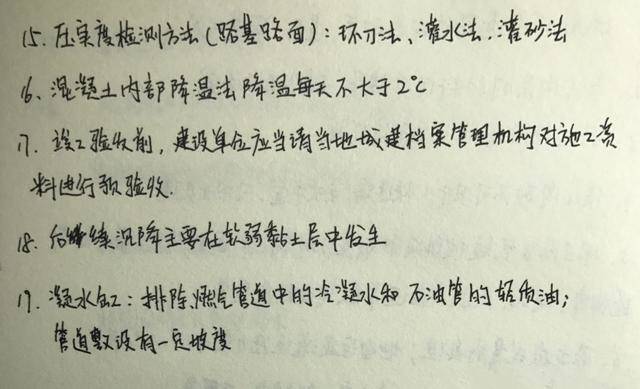 15. 压实度检测方法(路基路面): 环刀法、灌水法、灌砂法
16、混凝土内部降温法降温每天不大于2℃
17. 竣工验收前, 建设单位应当请当地城建档案管理机构对施工资
料进行预验收.
18. 后续沉降主要在软弱黏土层中发生
19. 凝水缸: 排除燃气管道中的冷凝水和石油管的轻质油;
管道敷设有一定坡度